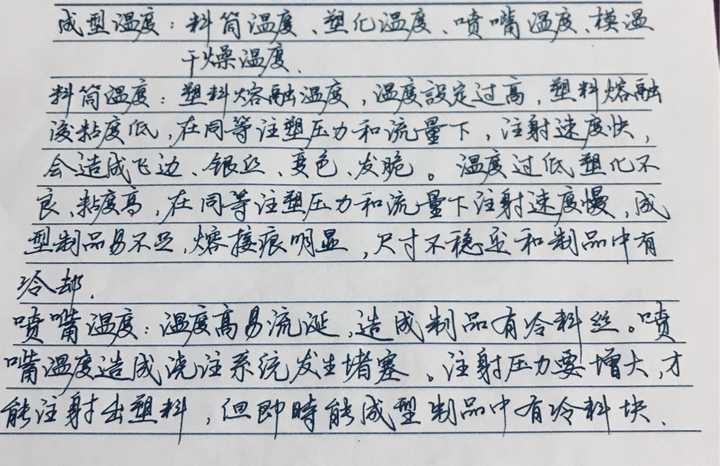 成型温度：料筒温度、塑化温度、喷嘴温度、模温
干燥温度.
料筒温度：塑料熔融温度，温度設定过高，塑料熔融
液粘度低，在同等注塑压力和流量下，注射速度快，
会造成飞边、银丝、变色、发脆。温度过低塑化不
良、粘度高，在同等注塑压力和流量下注射速度慢，成
型制品易不足，熔接痕明显，尺寸不稳定和制品中有
冷却.
喷嘴温度：温度高易流涎，造成制品有冷料丝。喷
嘴温度造成浇注系统发生堵塞。注射压力要增大，才
能注射出塑料，但即時能成型制品中有冷料块.